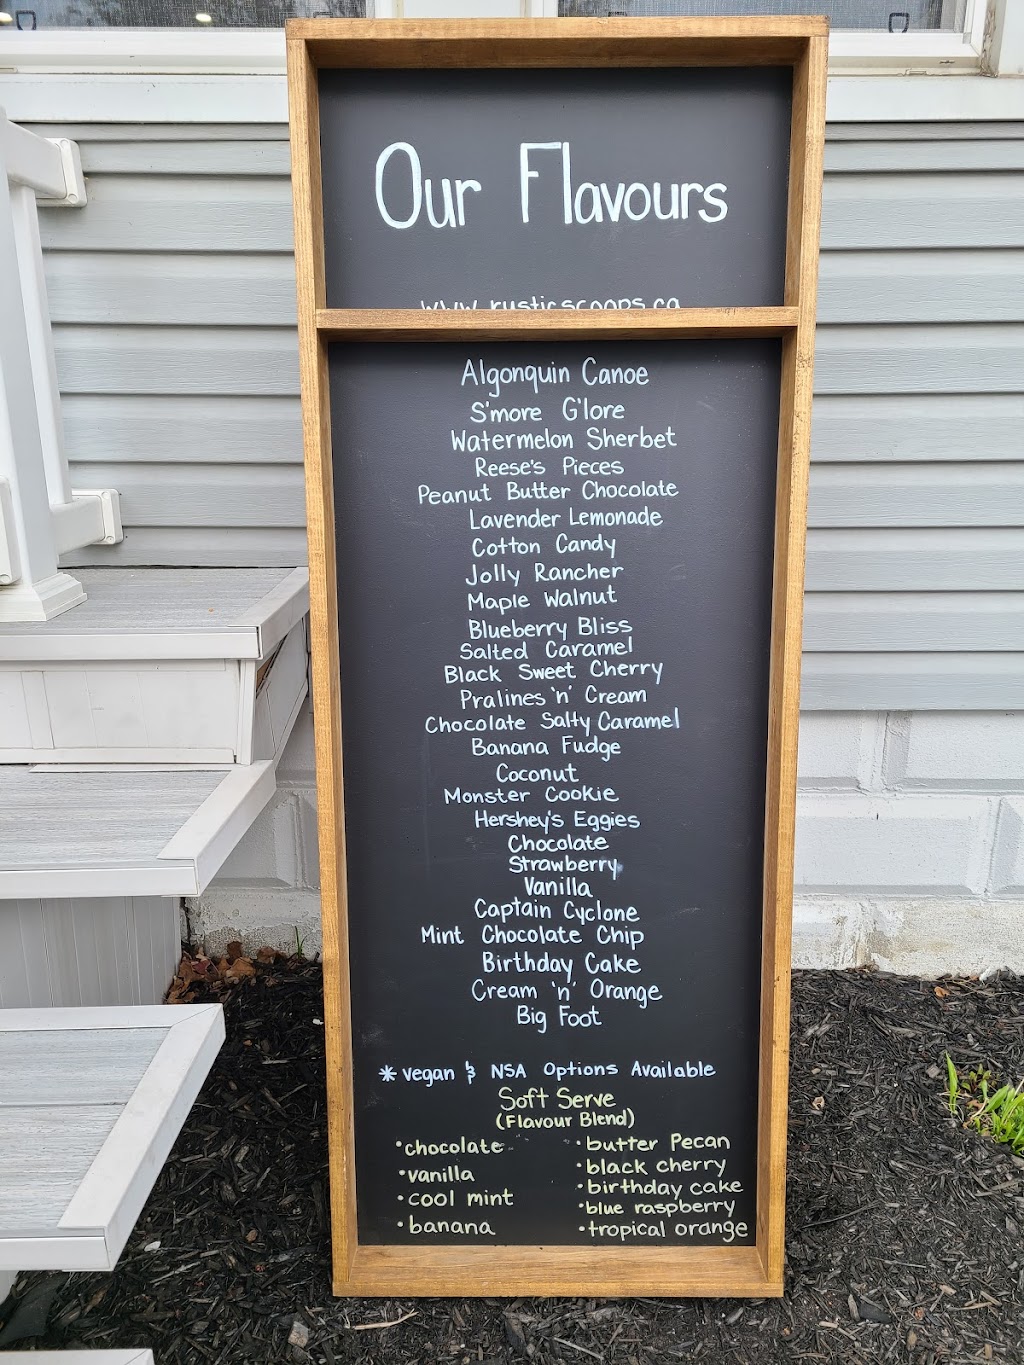 Our Flavours
www.rusticscoops.ca
Algonquin Canoe
S'more G'lore
Watermelon Sherbet
Reese's Pieces
Peanut Butter Chocolate
Lavender Lemonade
Cotton Candy
Jolly Rancher
Maple Walnut
Blueberry Bliss
Salted Caramel
Black Sweet Cherry
Pralines 'n' Cream
Chocolate Salty Caramel
Banana Fudge
Coconut
Monster Cookie
Hershey's Eggies
Chocolate
Strawberry
Vanilla
Captain Cyclone
Mint Chocolate Chip
Birthday Cake
Cream 'n' Orange
Big Foot
* vegan & NSA Options Available
Soft Serve
(Flavour Blend)
• chocolate
• vanilla
• cool mint
• banana
• butter Pecan
• black cherry
• birthday cake
• blue raspberry
• tropical orange